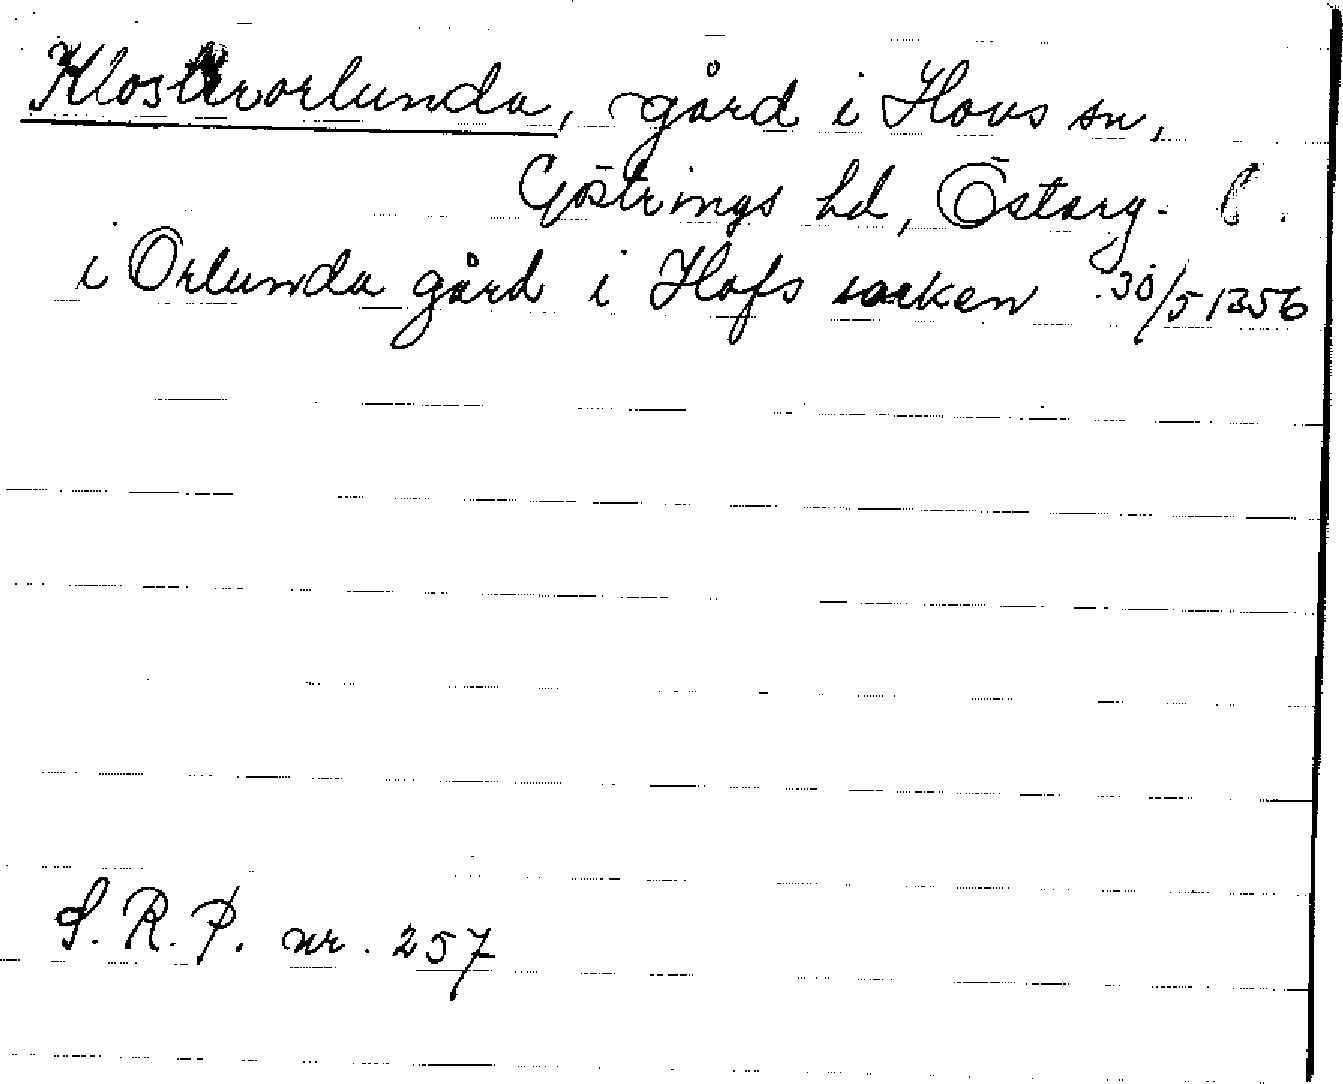 Klosterorlunda, gård i Hovs sn,
Göstrings hd, Östg.
i Orlunda gård i Hofs sokn 30/5 1356
S.R.P. nr. 257